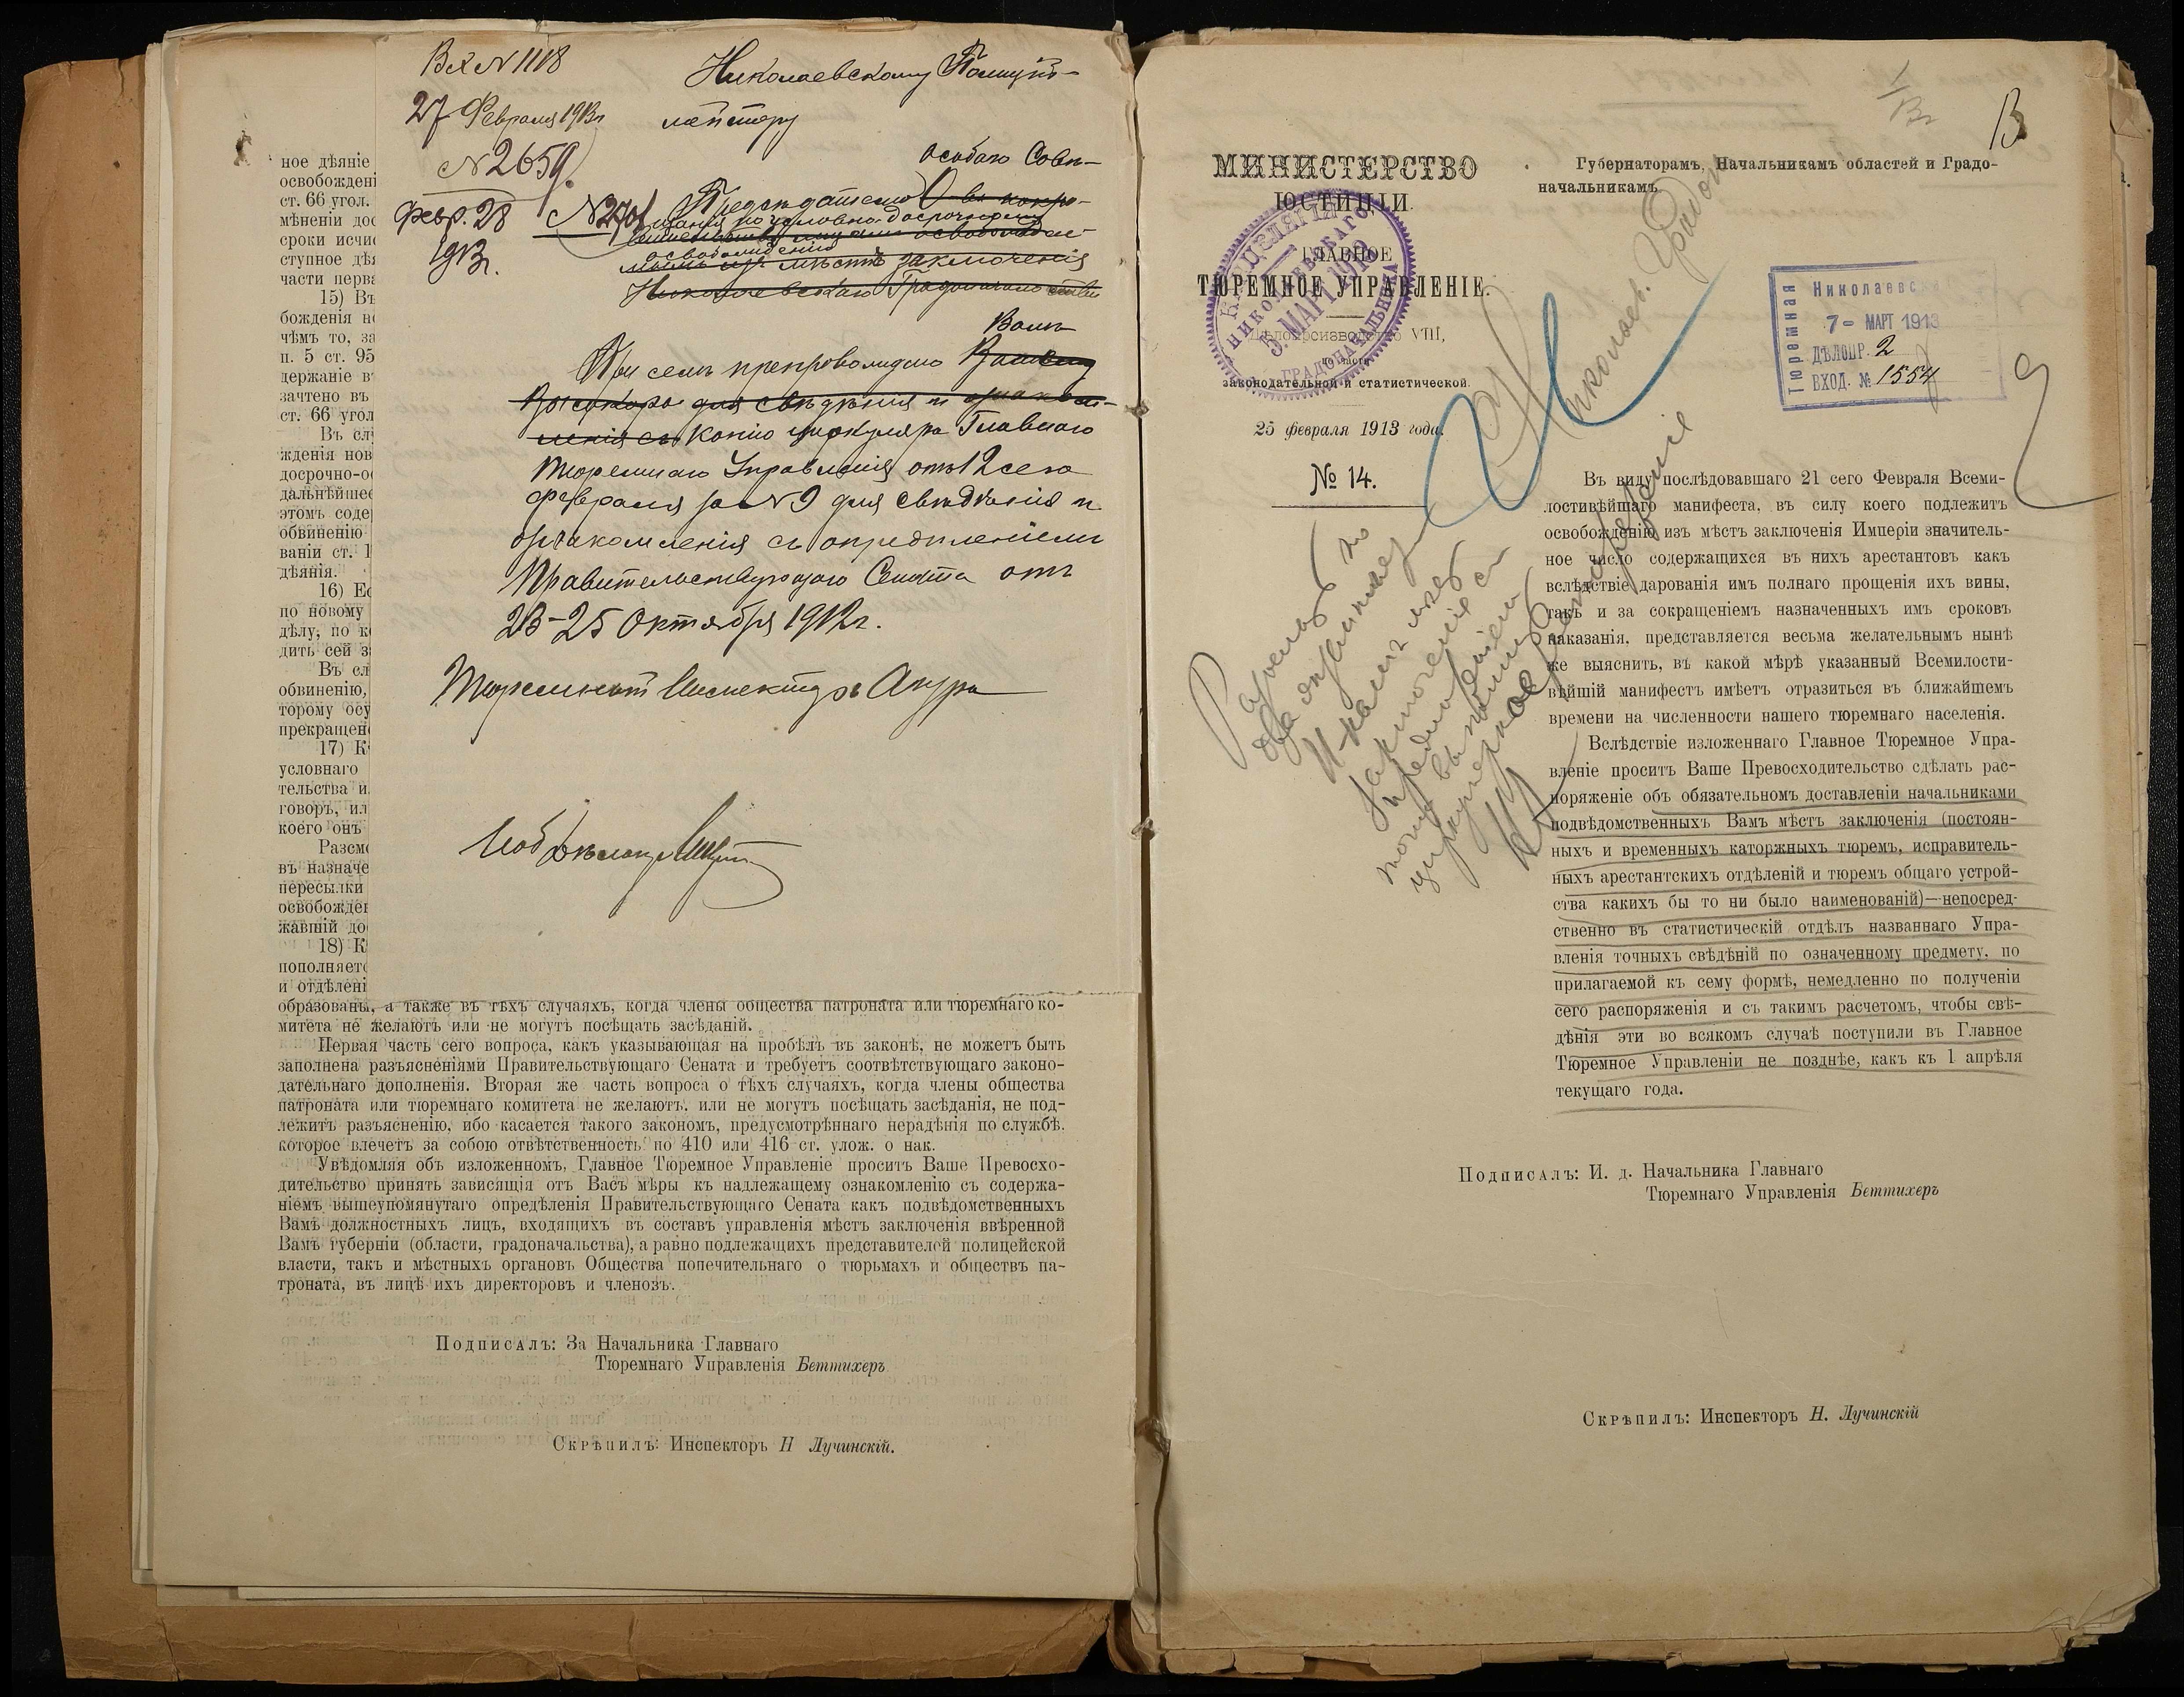 Вх N 1118
27 Февраля 1913 г
N 2659.
Февр. 28 N 2701
1913 г.
Николаевскому Полицій-
мейстеру
особаго Совѣ-
Предсѣдателю О-ва покро-
щанія по условно-досрочному
вительства лицамъ освобождае-
освобожденію
мымъ изъ мѣстъ заключенія
Николаевскаго Градоначальства
Вамъ
При семъ препровождаю Вашему
Высокоро для свѣдѣнія и ознаком-
ленія съ копію циркуляра Главнаго
Тюремнаго Управленія отъ 12 сего
февраля за N 9 для свѣдѣнія и
ознакомленія съ опредѣленіемъ
Правительствующаго Сената отъ
23-25 Октября 1912 г.
Тюремный Инспекторъ
ное дѣяніе
освобождені
ст. 66 угол.
мѣненіи дос
сроки исчис
ступное дѣя
части перва
15) Въ
божденія не
чѣмъ то, за
п. 5 ст. 95
держаніе в
зачтено въ
ст. 66 угол
Въ слу
жденія нов
досрочно-о
дальнѣйшее
этомъ соде
обвиненію
ваніи ст. 1
дѣянія.
16) Ес
по новому
дѣлу, по к
дить сей з
Въ сл
обвиненію,
торому осу
прекращен
17) К
условнаго
тельства и
говоръ, ил
коего онъ
Разсмо
въ назначе
пересылки
освобожде
жавшій до
18) К
пополняетс
и отдѣлені
образованы, а также въ тѣхъ случаяхъ, когда члены общества патроната или тюремнаго ко-
митета не желаютъ или не могутъ посѣщать засѣданій.
Первая часть сего вопроса, какъ указывающая на пробѣлъ въ законѣ, не можетъ быть
заполнена разъясненіями Правительствующаго Сената и требуетъ соотвѣтствующаго законо-
дательнаго дополненія. Вторая же часть вопроса о тѣхъ случаяхъ, когда члены общества
патроната или тюремнаго комитета не желаютъ. или не могутъ посѣщать засѣданія, не под-
лежитъ разъясненію, ибо касается такого закономъ, предусмотрѣннаго нерадѣнія по службѣ.
которое влечетъ за собою отвѣтственность по 410 или 416 ст. улож. о нак.
Увѣдомляя объ изложенномъ, Главное Тюремное Управленіе проситъ Ваше Превосхо-
дительство принять зависящія отъ Васъ мѣры къ надлежащему ознакомленію съ содержа-
ніемъ вышеупомянутаго опредѣленія Правительствующаго Сената какъ подвѣдомственныхъ
Вамъ должностныхъ лицъ, входящихъ въ составъ управленія мѣстъ заключенія ввѣренной
Вамъ губерніи (области, градоначальства), а равно подлежащихъ представителей полицейской
власти, такъ и мѣстныхъ органовъ Общества попечительнаго о тюрьмахъ и обществъ па-
троната, въ лицѣ ихъ директоровъ и членовъ.
Подписалъ: За Начальника Главнаго
Тюремнаго Управленія Беттихеръ
Скрѣпилъ: Инспекторъ Н Лучинскій.
13
МИНИСТЕРСТВО
ЮСТИЦІИ.
ГЛАВНОЕ
ТЮРЕМНОЕ УПРАВЛЕНІЕ.
Дѣлопроизводство VIII,
по части
законодательной и статистической.
25 февраля 1913 года.
№ 14.
КАНЦЕЛЯРІЯ
НИКОЛАЕВСКАГО
5. МАР. 1913
ГРАДОНАЧАЛЬНИКА
Губернаторамъ, Начальникамъ областей и Градо-
начальникамъ
Тюремная
Николаевс
7 - МАРТ 1913
ДѢЛОПР. 2
ВХОД. № 1554
Николаев. Градон
Въ виду послѣдовавшаго 21 сего Февраля Всеми-
лостивѣйшаго манифеста, въ силу коего подлежитъ
освобожденію изъ мѣстъ заключенія Имперіи значитель-
ное число содержащихся въ нихъ арестантовъ какъ
вслѣдствіе дарованія имъ полнаго прощенія ихъ вины,
такъ и за сокращеніемъ назначенныхъ имъ сроковъ
наказанія, представляется весьма желательнымъ нынѣ
же выяснить, въ какой мѣрѣ указанный Всемилости-
вѣйшій манифестъ имѣетъ отразиться въ ближайшемъ
времени на численности нашего тюремнаго населенія.
Вслѣдствіе изложеннаго Главное Тюремное Упра-
вленіе проситъ Ваше Превосходительство сдѣлать рас-
поряженіе объ обязательномъ доставленіи начальниками
подвѣдомственныхъ Вамъ мѣстъ заключенія (постоян-
ныхъ и временныхъ каторжныхъ тюремъ, исправитель-
ныхъ арестантскихъ отдѣленій и тюремъ общаго устрой-
ства какихъ бы то ни было наименованій)—непосред-
ственно въ статистическій отдѣлъ названнаго Упра-
вленія точныхъ свѣдѣній по означенному предмету, по
прилагаемой къ сему формѣ, немедленно по полученіи
сего распоряженія и съ такимъ расчетомъ, чтобы свѣ-
дѣнія эти во всякомъ случаѣ поступили въ Главное
Тюремное Управленіи не позднѣе, какъ къ 1 апрѣля
текущаго года.
Подписалъ: И. д. Начальника Главнаго
Тюремнаго Управленія Беттихеръ
Скрѣпилъ: Инспекторъ Н. Лучинскій